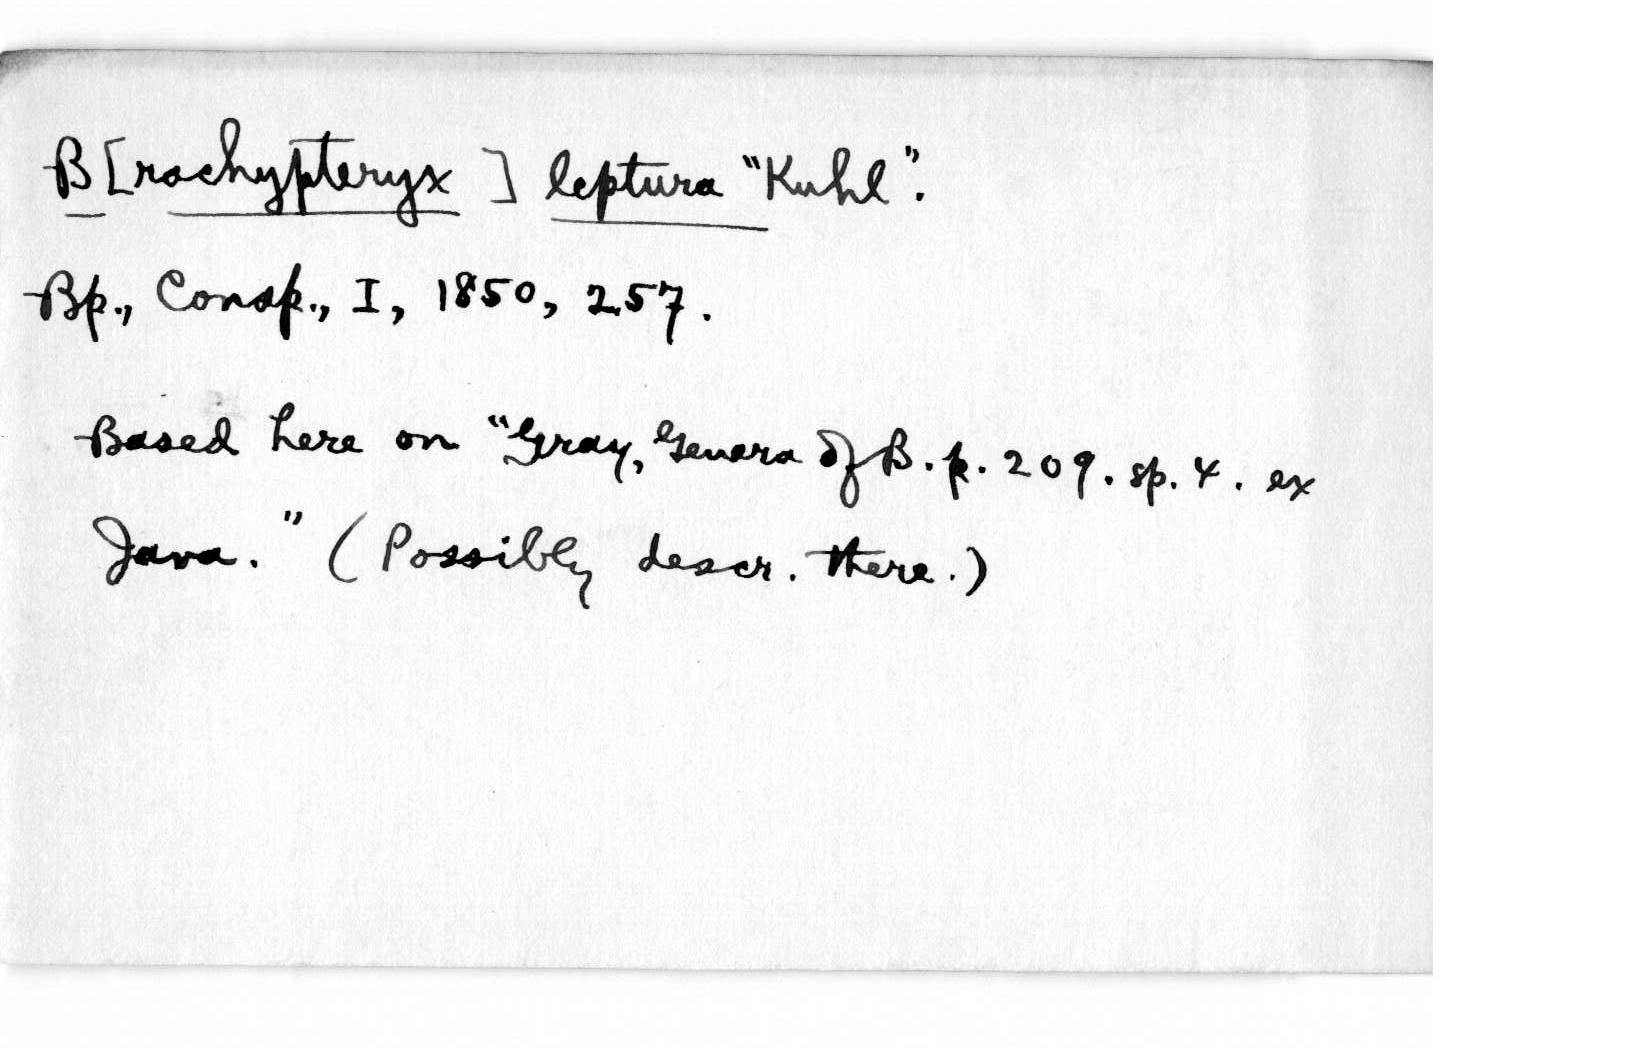 B[rachypteryx ] leptura "Kuhl".
Bp., Consp., I, 1850, 257.
Based here on "Gray, Genera of B. p. 209. sp. 4. ex
Java." (Possibly descr. there.)